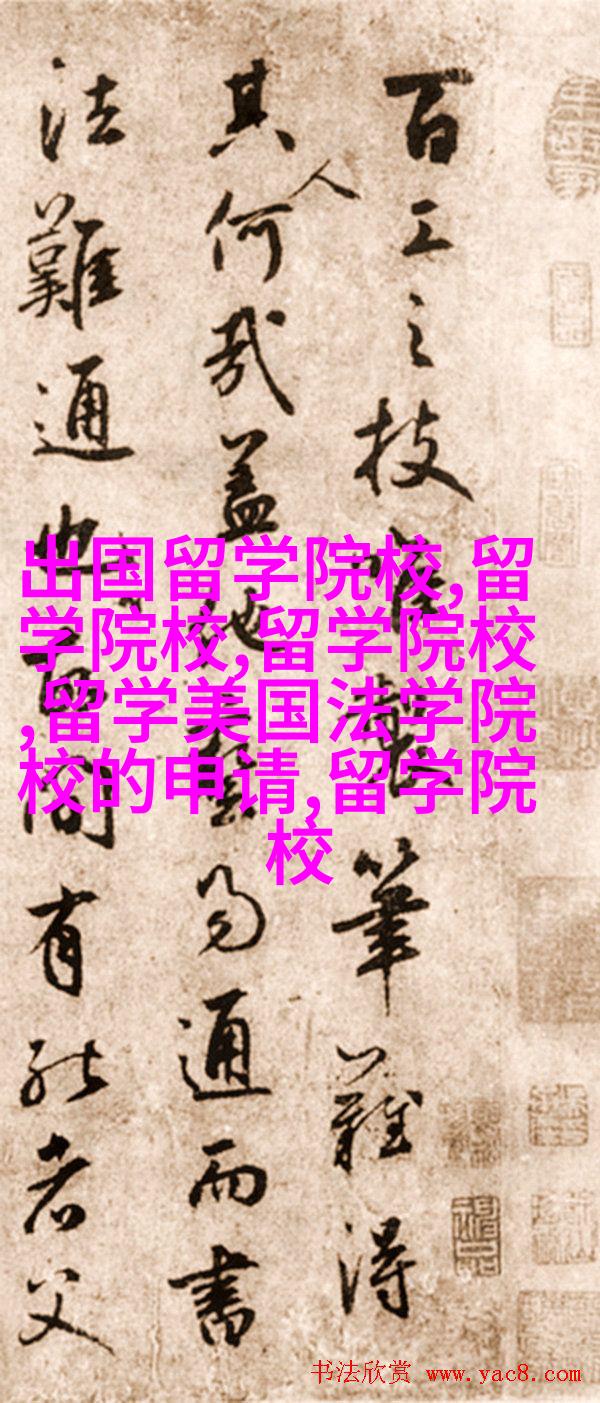 百工之技惟筆難得
其人何哉蓋他易通而書
法難通也間有能者父
出国留学院校,留
学院校,留学院校
,留学美国法学院
校的申请,留学院
校
书法欣赏 www.yac8.com